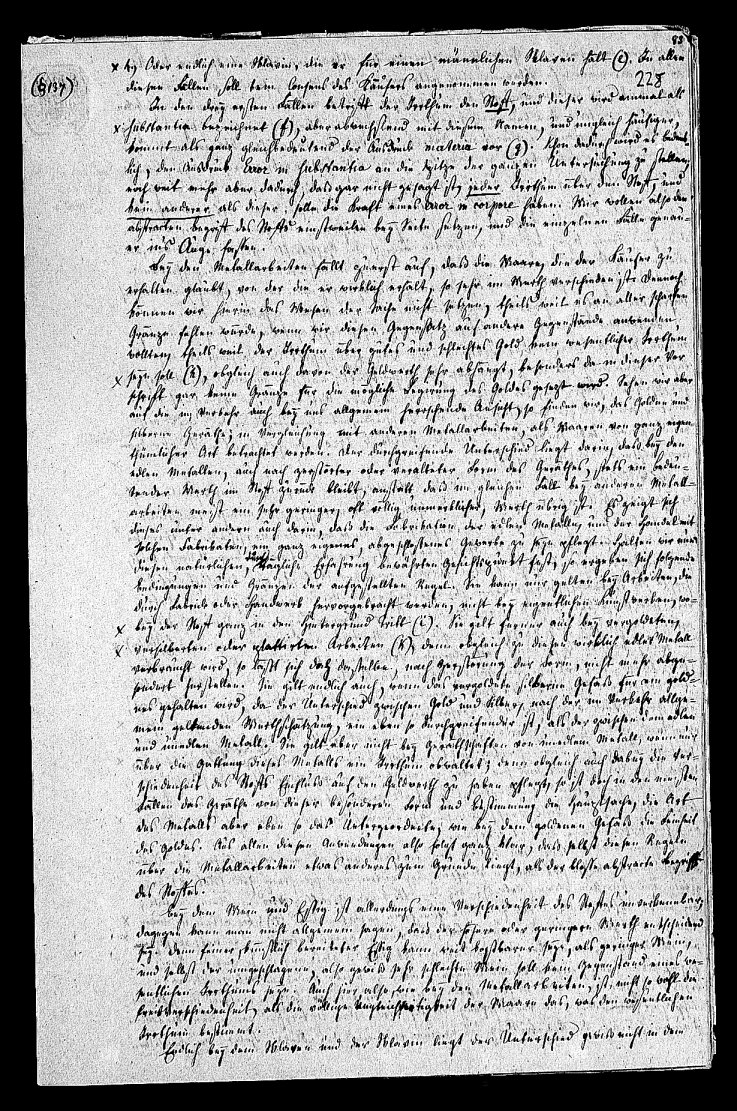 82
228
(§137)
4) Oder endlich eine Sklavin, die er für einen männlichen Sklaven hält (e). In allen
diesen Fällen soll kein Consens des Käufers angenommen werden.
In den drey ersten Fällen betrifft der Irrthum den Stoff, und dieser wird einmal als
substantia bezeichnet (f), aber abwechslend mit diesem Namen, und ungleich häufiger,
kommt als ganz gleichbedeutend der Ausdruck materia vor (g). Schon dadurch wird es bedenk-
lich, den Ausdruck Error in substantia an die Spitze der ganzen Untersuchung zu stellen,
noch weit mehr aber dadurch, daß gar nicht gesagt ist, jeder Irrthum über den Stoff, und
kein anderer als dieser, solle die Kraft eines error in corpore haben. Wir wollen also den
abstracten Begriff des Stoffs einstweilen bey Seite setzen, und die einzelnen Fälle genau-
er ins Auge fassen.
Bey den Metallarbeiten fällt zuerst auf, daß die Waare, die der Käufer zu
erhalten glaubt, von der die er wirklich erhält, so sehr im Werth verschieden ist. Dennoch
können wir hierin das Wesen der Sache nicht setzen, theils weil es an aller scharfen
Gränze fehlen würde, wenn wir diesen Gegensatz auf andere Gegenstände anwenden
wollten, theils weil der Irrthum über gutes und schlechtes Gold kein wesentlicher Irrthum
seyn soll (h), obgleich auch davon der Geldwerth sehr abhängt, besonders da in dieser Vor-
schrift gar keine Gränze für die mögliche Legirung des Goldes gesetzt wird. Sehen wir aber
auf die im Verkehr auch bey uns allgemein herrschende Ansicht, so finden wir, daß goldene und
silberne Geräthe, in Vergleichung mit anderen Metallarbeiten, als Waaren von ganz eigen-
thümlicher Art betrachtet werden. Der durchgreifende Unterschied liegt darin, daß bey den
edlen Metallen, auch nach zerstörter oder veralteter Form des Geräthes, stets ein bedeu-
tender Werth im Stoff zurück bleibt, anstatt daß im gleichen Fall bey anderen Metall-
arbeiten meist ein sehr geringer, oft völlig unmerklicher, Werth übrig ist. Es zeigt sich
dieses unter andern auch darin, daß die Fabrication der edlen Metalle, und der Handel mit
solchen Fabricaten, ein ganz eigenes, abgeschlossenes Gewerbe zu seyn pflegt. Halten wir nun
diesen natürlichen, durch tägliche Erfahrung bewährten Gesichtspunkt fest, so ergeben sich folgende
Bedingungen und Gränzen der aufgestellten Regel. Sie kann nur gelten bey Arbeiten, die
durch Fabrik oder Handwerk hervorgebracht werden, nicht bey eigentlichen Kunstwerken, wo-
bey der Stoff ganz in den Hintergrund tritt (i). Sie gilt ferner auch bey vergoldeten,
versilberten oder plattirten Arbeiten (k), denn obgleich zu diesen wirklich edles Metall
verbraucht wird, so läßt sich doch dasselbe, nach Zerstörung der Form, nicht mehr abge-
sondert herstellen. Sie gilt endlich auch, wenn das vergoldete silberne Gefäß für ein golde-
nes gehalten wird, da der Unterschied zwischen Gold und Silber, nach der im Verkehr allge-
mein geltenden Werthschätzung, ein eben so durchgreifender ist, als der zwischen dem edlen
und unedlen Metall. Sie gilt aber nicht bey Geräthschaften von unedlem Metall, wenn nur
über die Gattung dieses Metalls ein Irrthum obwaltet; denn obgleich auch dabey die Ver-
schiedenheit des Stoffs Einfluß auf den Geldwerth zu haben pflegt, so ist doch in den meisten
Fällen das Geräthe von dieser besonderen Form und Bestimmung die Hauptsache, die Art
des Metalls aber eben so das Untergeordnete, wie bey dem goldenen Gefäß die Feinheit
des Goldes. Aus allen diesen Anwendungen also folgt ganz klar, daß selbst diesen Regeln
über die Metallarbeiten etwas anderes zum Grunde liegt, als der bloße abstracte Begriff
des Stoffes.
Bey dem Wein und Essig ist allerdings eine Verschiedenheit des Stoffes unverkennbar;
dagegen kann man nicht allgemein sagen, daß der höhere oder geringere Werth entscheidend
sey. Denn feiner, künstlich bereiteter Essig kann weit kostbarer seyn, als geringer Wein,
und selbst der umgeschlagene, also gewiß sehr schlechte Wein soll kein Gegenstand eines we-
sentlichen Irrthums seyn. Auch hier also, wie bey den Metallarbeiten, ist nicht so wohl die
Preisverschiedenheit, als die völlige Ungleichartigkeit der Waaren das, was den wesentlichen
Irrthum bestimmt.
Endlich bey dem Sklaven und der Sklavin liegt der Unterschied gewiß nicht in dem